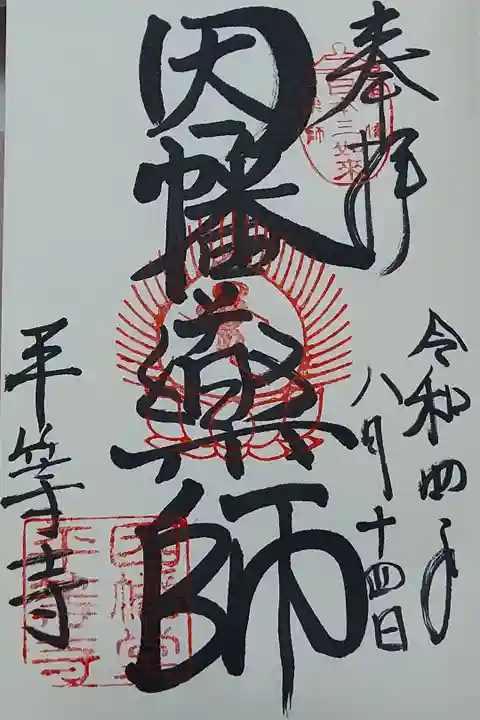 奉拝
令和四年
八月十四日
因幡薬師
平等寺
因幡堂
平等寺